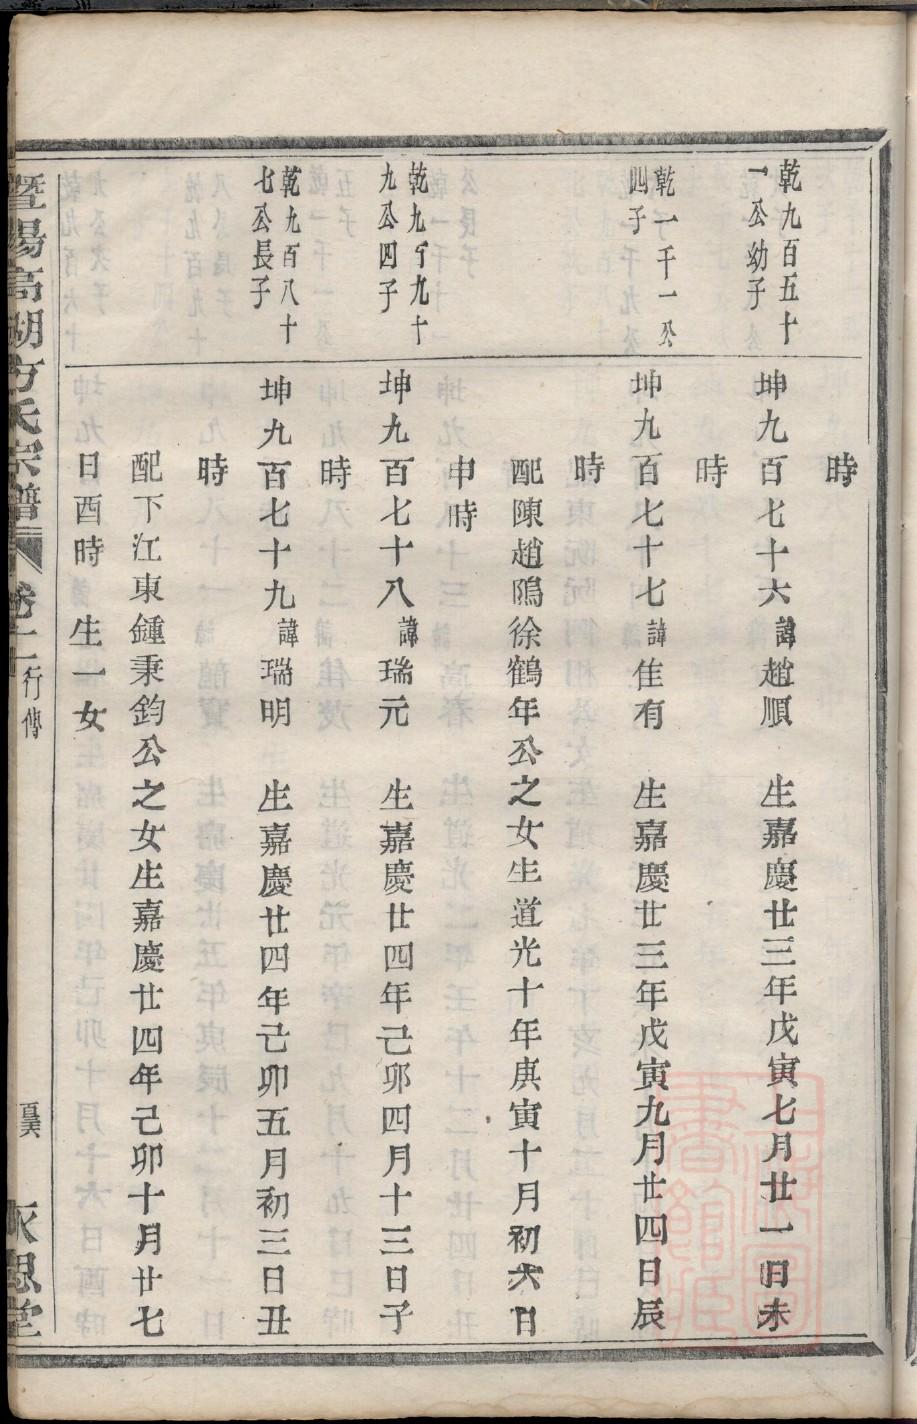 時
乾九百五十
一公幼子
坤九百七十六諱趙順　生嘉慶廿三年戊寅七月廿一日未
時
乾一千一公
四子
坤九百七十七諱隹有　生嘉慶廿三年戊寅九月廿四日辰
時
配陳趙隝徐鶴年公之女生道光十年庚寅十月初六日
申時
乾九百九十
九公四子
坤九百七十八諱瑞元　生嘉慶廿四年己卯四月十三日子
時
乾九百八十
七公長子
坤九百七十九諱瑞明　生嘉慶廿四年己卯五月初三日丑
時
配下江東鍾秉鈞公之女生嘉慶廿四年己卯十月廿七
日酉時生一女
暨陽高湖方氏宗譜
行傳
思堂